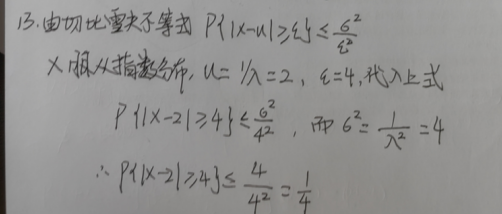 13.由切比雪夫不等式 P{|x-u|≥ε}≤σ²/ε²
X服从指数分布, u=1/λ=2, ε=4,代入上式
P{|x-2|≥4}≤σ²/4², 而σ²=1/λ²=4
∴P{|x-2|≥4}≤4/4²=1/4